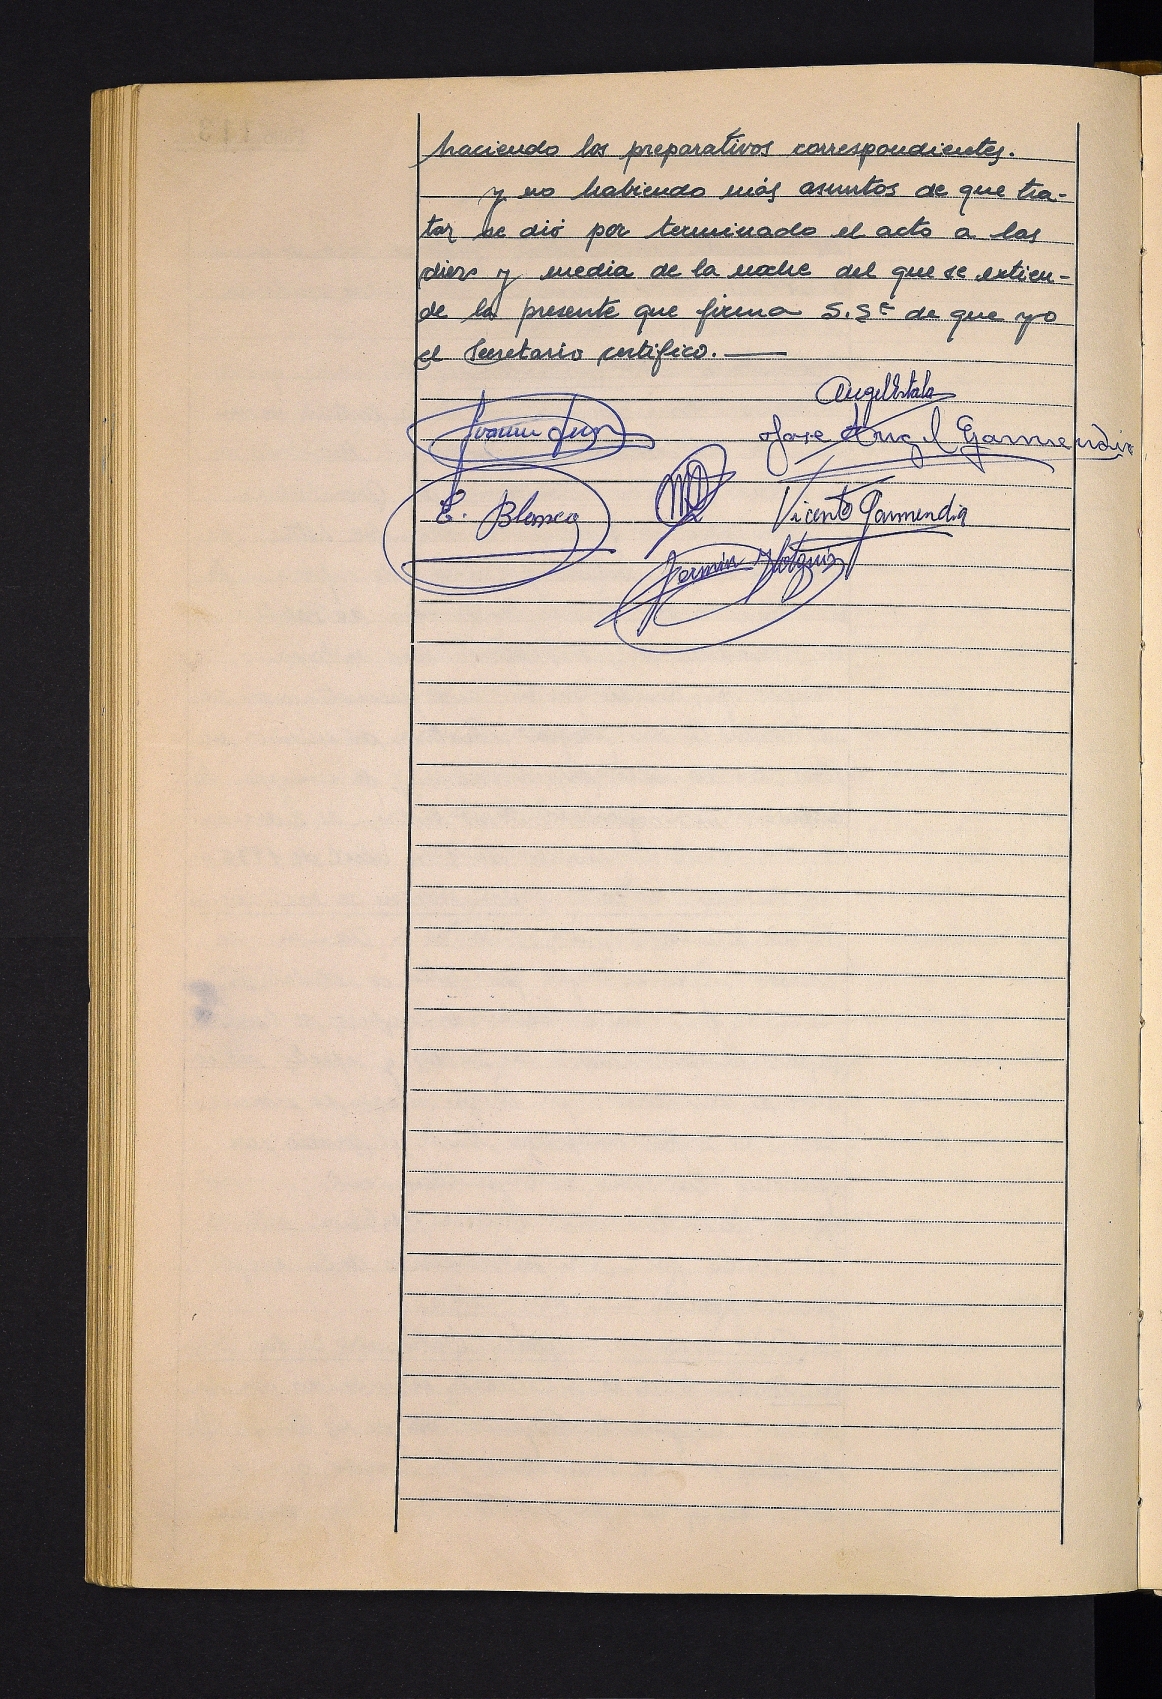 haciendo los preparativos correspondientes.
y no habiendo más asuntos de que tra-
tar se dió por terminado el acto a las
diez y media de la noche del que se extien-
de la presente que firma S.Sª de que yo
el Secretario certifico.—
Angel Estala
Jose Angel Garmendia
E. Blanco
Vicente Garmendia
Fermin